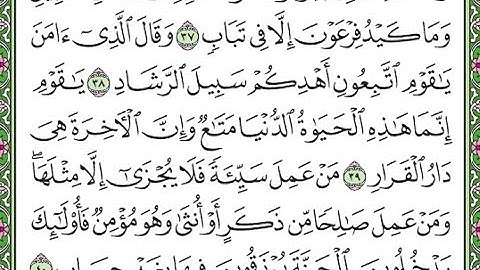 وَمَا كَيْدُ فِرْعَوْنَ إِلَّا فِي تَبَابٍ ٣٧ وَقَالَ ٱلَّذِىٓ ءَامَنَ
يَٰقَوْمِ ٱتَّبِعُونِ أَهْدِكُمْ سَبِيلَ ٱلرَّشَادِ ٣٨ يَٰقَوْمِ
إِنَّمَا هَٰذِهِ ٱلْحَيَوٰةُ ٱلدُّنْيَا مَتَٰعٌ وَإِنَّ ٱلْأٓخِرَةَ هِىَ
دَارُ ٱلْقَرَارِ ٣٩ مَنْ عَمِلَ سَيِّئَةً فَلَا يُجْزَىٰٓ إِلَّا مِثْلَهَاۖ
وَمَنْ عَمِلَ صَٰلِحًا مِّن ذَكَرٍ أَوْ أُنثَىٰ وَهُوَ مُؤْمِنٌ فَأُو۟لَٰٓئِكَ
يَدْخُلُونَ ٱلْجَنَّةَ يُرْزَقُونَ فِيهَا بِغَيْرِ حِسَابٍ ٤٠